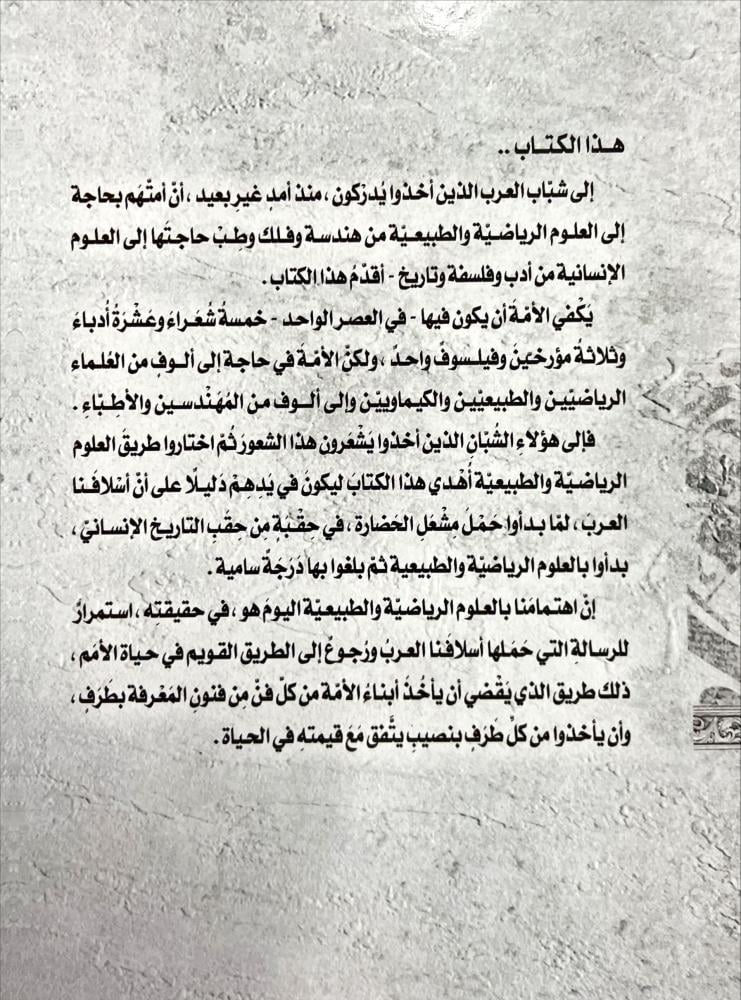 هـذا الكتـاب ..
إلى شبّاب العرب الذين أخذوا يُدرَكون ، منذ أمدٍ غيرِ بعيد ، أنّ أمتّهَم بحاجة
إلى العلـوم الرياضيّـة والطبيعـيّة من هندسة وفـلك وطِبْ حاجتَها إلى العلـوم
الإنسانية من أدب وفلسفة وتاريخ - أقدّمُ هذا الكتاب .
يَكْفي الأمّةَ أن يكون فيها - في العصر الواحد - خمسةُ شُعَراءَ وعَشْرَةُ أُدباءَ
وثلاثةُ مؤرخَينُ وفيلسوفٌ واحدٌ ، ولكنّ الأمّةَ في حاجة إلى ألـوفٍ من العُلماء
الرياضيّيين والطبيعيّيين والكيماوييّن وإلى ألـوف من المُهَنْدسين والأطبّاءِ .
فإلى هؤلاءِ الشُبّانِ الذين أخذوا يَشْعَرون هذا الشعورَ ثُمّ اختاروا طريقَ العلوم
الرياضـيّة والطبيعيّة أُهْدي هذا الكتابَ ليكونَ في يَدِهمْ دَليلًا على أنّ أسْلافَـنا
العـربَ ، لمّا بـدأوا حَمْلَ مِشْعَلِ الحَضارة ، في حِقْبَةٍ مِن حِقَبِ التاريخ الإنسانيّ ،
بدأوا بالعلوم الرياضيّة والطبيعية ثمّ بلغوا بها دَرَجَةً سامية .
إنّ اهتمامَنا بالعلوم الرياضيّة والطبيعيّة اليومَ هو ، في حقيقتِه ، استمرارٌ
للرسالةِ التي حَمَلها أسلافَنا العربُ ورُجوعٌ إلى الطريق القويم في حياة الأمَم ،
ذلك طريق الذي يَقْضي أن يأخُذُ أبناءُ الأمّة من كلّ فنٌ مِن فنونِ المَعْرفة بطَرَفٍ ،
وأن يأخذوا من كلّ طَرَفٍ بنصيبٍ يتَّفق مَعَ قيمتهِ في الحياة .